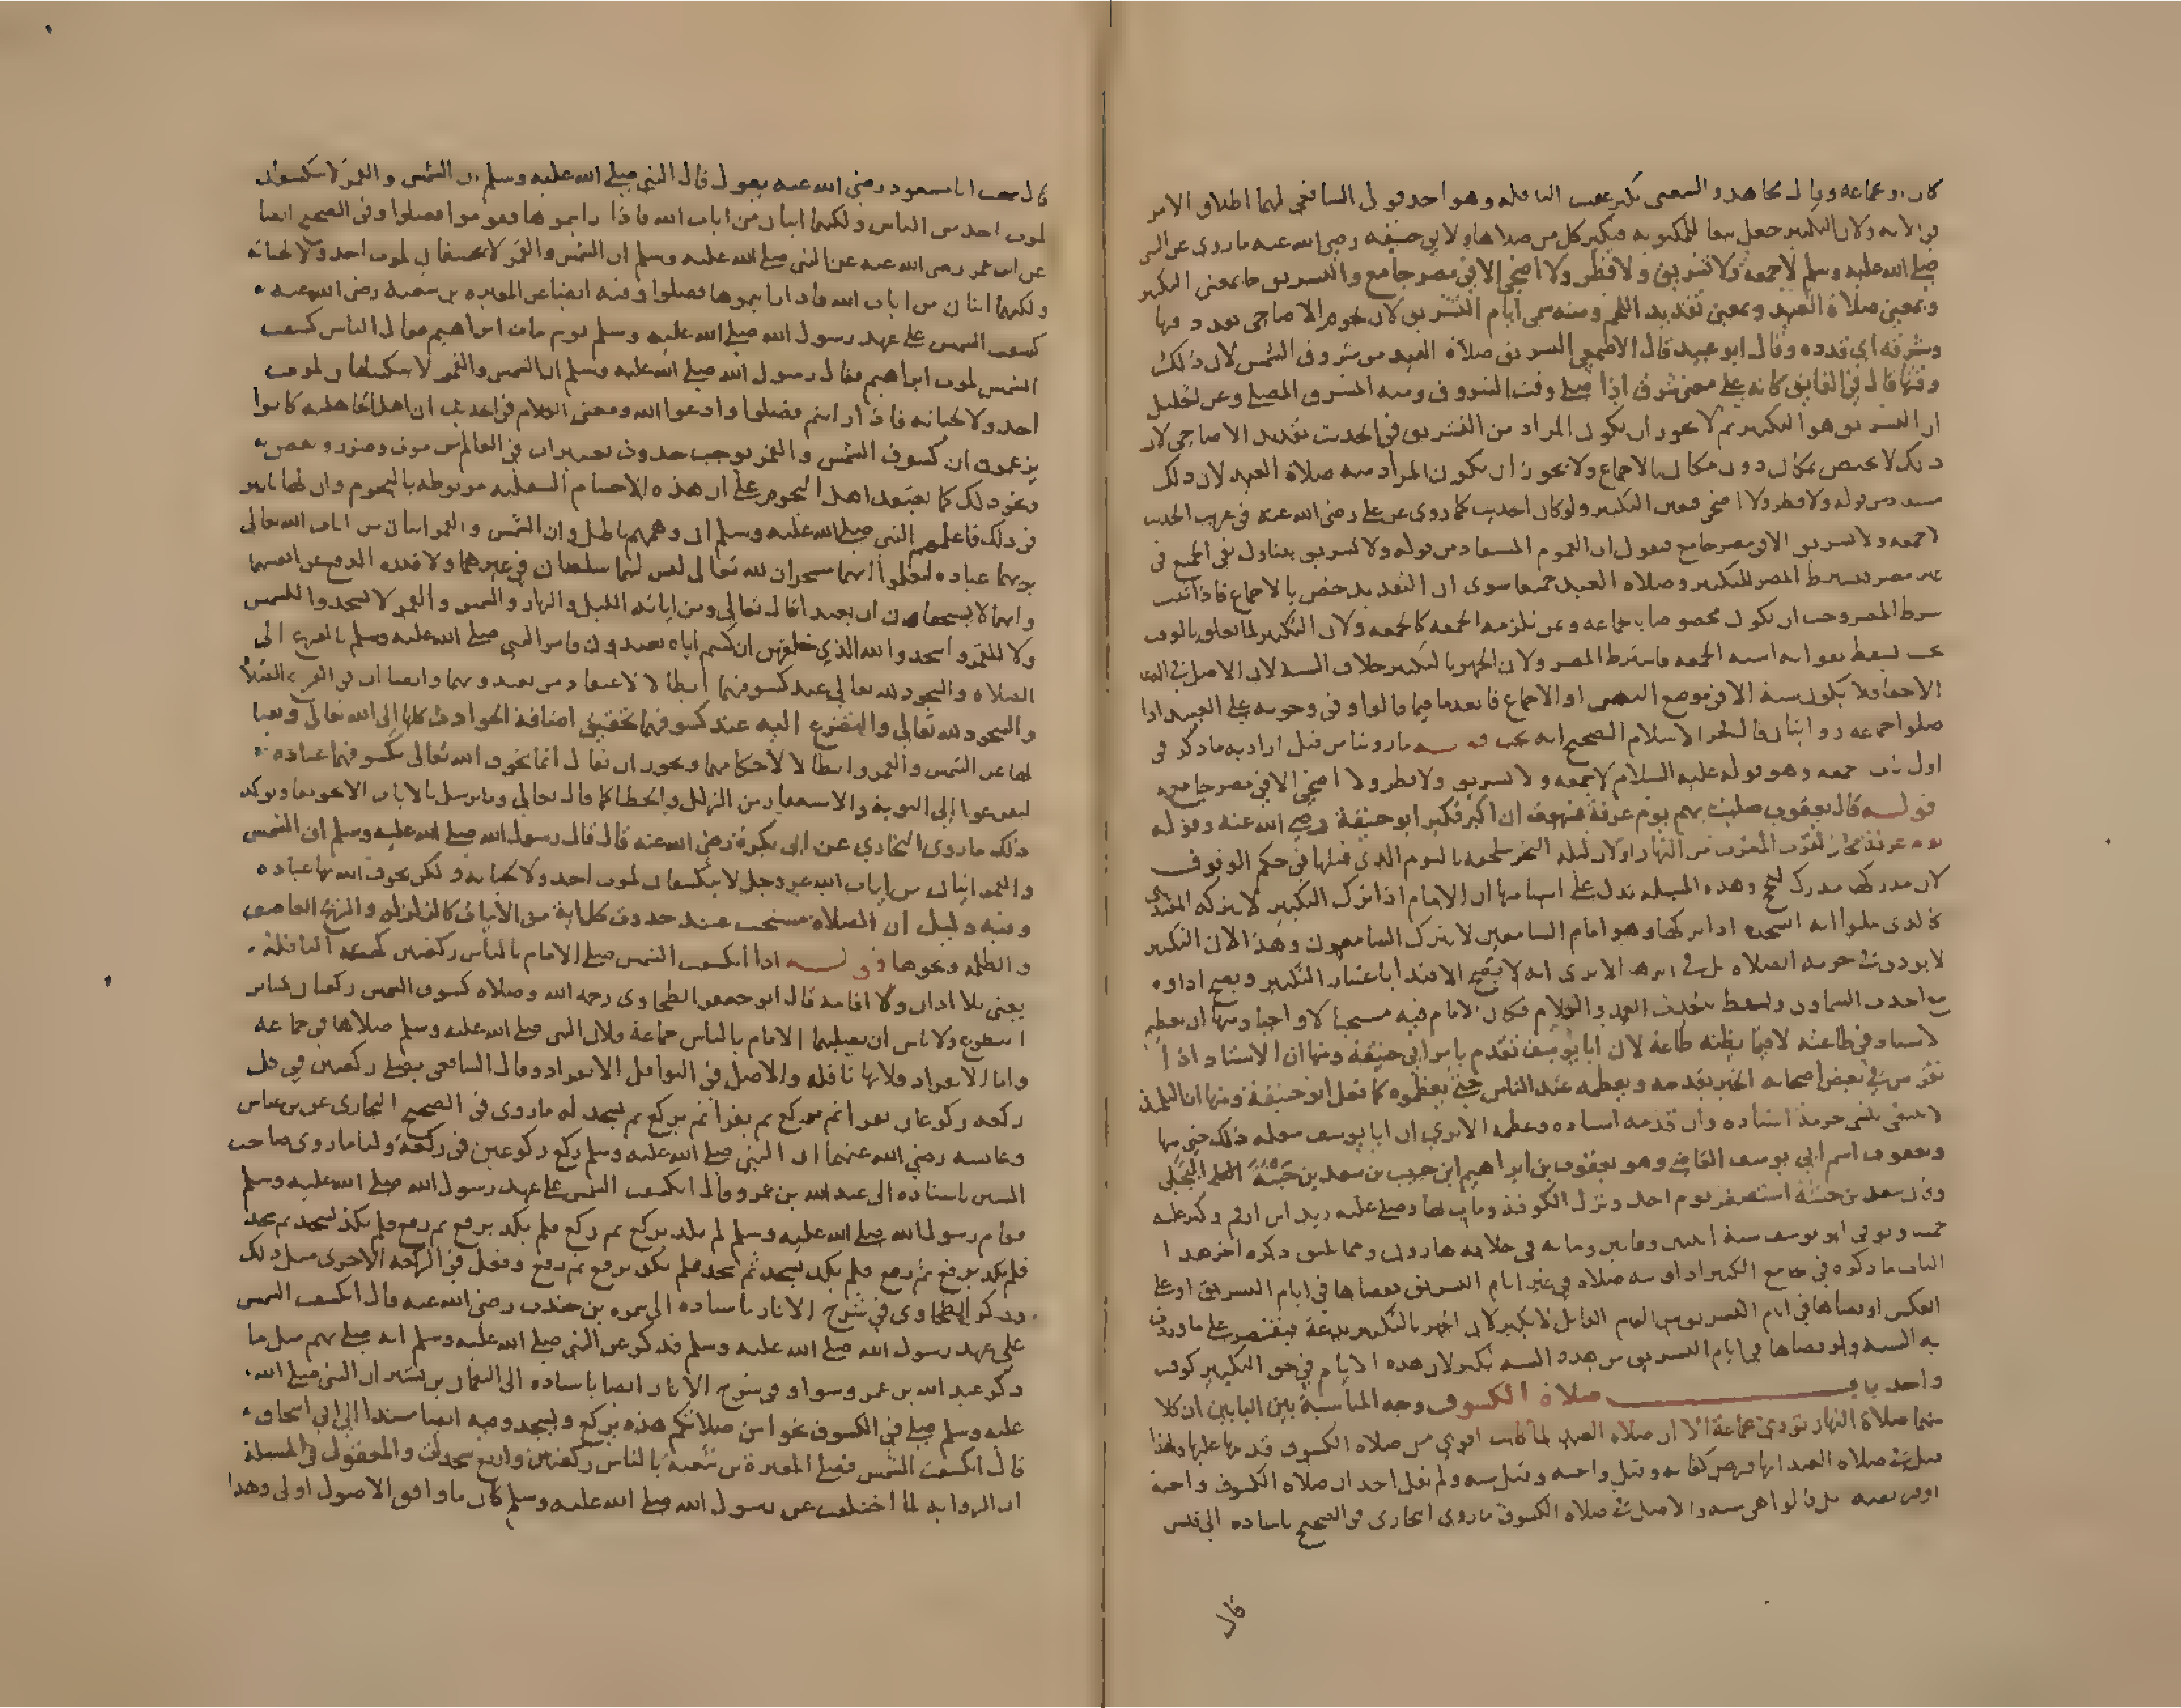 كان او جماعه وقال مجاهد والشعبى يكبر عقيب النافله وهو احد قولى الشافعى لهما اطلاق الامر
فى الايه ولان التكبير جعل تبعا للمكتوبه فيكبر كل من صلاها ولابي حنيفه رضى الله عنه ما روى عن النبي
صلى الله عليه وسلم لا جمعة ولا تشريق ولا فطر ولا اضحى الا في مصر جامع والتشريق جا بمعنى التكبير
وبمعنى صلاة العيد وبمعنى تقديد اللحم ومنه سمى ايام التشريق لان لحوم الاضاحى تقدد فيها
وشرقه اي قدده وقال ابو عبيد قال الاصمعي التشريق صلاة العيد من شروق الشمس لان ذلك
وقتها قال في الفايق كانه على معنى شرق اذا صلى وقت الشروق ومنه المشرق المصلى وعن الخليل
ان التشريق هو التكبير ثم لا يجوز ان يكون المراد من التشريق في الحديث تقديد الاضاحي لان
ذلك لا يختص بمكان دون مكان بالاجماع ولا يجوز ان يكون المراد منه صلاة العيد لان ذلك
مستفاد من قوله ولا فطر ولا اضحى فتعين التكبير ولو كان الحديث كما روى عن على رضى الله عنه في غريب الحديث
لا جمعه ولا تشريق الا في مصر جامع فنقول ان العموم المستفاد من قوله ولا تشريق يتناول نفي الجميع في
غير مصر فيشترط المصر للتكبير وصلاه العيد جميعا سوى ان التقديد خص بالاجماع فاذا ثبت
شرط المصر وجب ان يكون مخصوصا بجماعه وعن تلزمه الجمعه كالجمعه ولان التكبير لما تعلق بالوقت
الاخفاء فلا يكون سنة الا في موضع النص او الاجماع فابعدها فيما قالوا وفي وجوبه على العبيد اذا
صلوا جماعه روايتان قال فخر الاسلام الصحيح انه يجب قوله ما روينا من قبل اراد به ما ذكر في
اول باب الجمعه وهو قوله عليه السلام لا جمعه ولا تشريق ولا فطر ولا اضحى الا في مصر جامع
قوله قال يعقوب صليت بهم يوم عرفة فسهوت ان اكبر فكبر ابو حنيفة رضي الله عنه وقوله
لان مدركها مدرك الحج وهذه المسله تدل على اشيا منها ان الامام اذا ترك التكبير لا يتركه المقتدي
لا يودى في حرمه الصلاه بل في اثرها الا يرى انه لا يصح الاقتدا باعتبار التكبير ويصح اداوه
لاستاده في طاعته لا فيما يظنه طاعة لان ابا يوسف تقدم بامر ابي حنيفة ومنها ان الاستاد اذا
تفرس في بعض اصحابه الخير يقدمه ويعظمه عند الناس حتى يعظموه كما فعل ابو حنيفة ومنها ان التلميذ
لا ينبغي ان ينسى حرمة استاده وان قدمه استاده وعظمه الا يري ان ابا يوسف
ويعقوب اسم ابي يوسف القاضي وهو يعقوب بن ابراهيم ابن حبيب بن سعد بن حبتة البجلي
وكان سعد بن حبتة استصغر يوم احد ونزل الكوفة ومات بها وصلى عليه زيد ابن ارقم وكبر عليه
خمسا وتوفى ابو يوسف سنة اثنين وثمانين ومايه في خلافه هارون ومما يليق ذكره اخر هذا
الباب ما ذكره في جامع الكبير اذا فاته صلاه في غير ايام التشريق فقضاها في ايام التشريق او على
العكس او قضاها في ايام التشريق من العام القابل لا يكبر لان الجهر بالتكبير بدعة فيقتصر على ما وردت
به السنه ولو قضاها في ايام التشريق من هذه السنه يكبر لان هذه الايام في حق التكبير كوقت
واحد باب صلاة الكسوف وجه المناسبة بين البابين ان كلا
منهما صلاة النهار تودى بجماعة الا ان صلاه العيد لما كانت اقوي من صلاه الكسوف قدمها عليها ولهذا
قيل في صلاه العيد انها فرض كفايه وقيل واجبه وقيل سنه ولم يقل احد ان صلاه الكسوف واجبة
او فرض بعينه بل قالوا هي سنه والاصل في صلاه الكسوف ما روى البخارى في الصحيح باسناده الى قيس
قال
قال سمعت ابا مسعود رضى الله عنه يقول قال النبي صلى الله عليه وسلم ان الشمس والقمر لا ينكسفان
لموت احد من الناس ولكنهما ايتان من ايات الله فاذا رايتموها فقوموا فصلوا وفى الصحيح ايضا
عن ابن عمر رضى الله عنه عن النبى صلى الله عليه وسلم ان الشمس والقمر لا يخسفان لموت احد ولا لحياته
ولكنهما ايتان من ايات الله فاذا رايتموها فصلوا وفيه ايضا عن المغيره بن شعبة رضى الله عنه
كسفت الشمس على عهد رسول الله صلى الله عليه وسلم يوم مات ابراهيم فقال الناس كسفت
الشمس لموت ابراهيم فقال رسول الله صلى الله عليه وسلم ان الشمس والقمر لا ينكسفان لموت
احد ولا لحياته فاذا رايتم فصلوا وادعوا الله ومعنى الكلام في الحديث ان اهل الجاهليه كانوا
يزعمون ان كسوف الشمس والقمر يوجب حدوث تغييرات في العالم من موت وضرر ونقص
ونحو ذلك كما يعتقد اهل النجوم على ان هذه الاجسام السفليه مربوطه بالنجوم وان لها تاثير
فى ذلك فاعلمهم النبى صلى الله عليه وسلم ان وهمهم باطل وان الشمس والقمر ايتان من ايات الله تعالى
يريهما عباده ليعلموا انهما مسخران لله تعالى ليس لهما سلطان في غيرهما ولا قدره الدفع عن انفسهما
وانهما لا يستحقان ان يعبدا قال تعالى ومن اياته الليل والنهار والشمس والقمر لا تسجدوا للشمس
ولا للقمر واسجدوا لله الذي خلقهن ان كنتم اياه تعبدون فامر النبى صلى الله عليه وسلم بالفزع الى
الصلاه والسجود لله تعالى عند كسوفهما ابطالا لاعتقاد من يعبدوهما وايضا ان في الفزع الى الصلاة
والسجود لله تعالى والتضرع اليه عند كسوفهما تحقيق اضافة الحوادث كلها الى الله تعالى ونفيا
لها عن الشمس والقمر وابطالا لاحكامهما ويجوز ان يقال انما يخوف الله تعالى بكسوفهما عباده
ليفزعوا الى التوبة والاستغفار من الزلل والخطا كما قال تعالى وما نرسل بالايات الا تخويفا ويوكد
ذلك ما روى البخاري عن ابى بكرة رضي الله عنه قال قال رسول الله صلى الله عليه وسلم ان الشمس
والقمر ايتان من ايات الله عز وجل لا ينكسفان لموت احد ولا لحياته ولكن يخوف الله بها عباده
وفيه دليل ان الصلاة مستحب عند حدوث كل اية من الايات كالزلزلة والريح العاصف
والظلمه ونحوها قوله اذا انكسفت الشمس صلى الامام بالناس ركعتين كهيئه النافله
يعني بلا اذان ولا اقامه قال ابو جعفر الطحاوى رحمه الله وصلاه كسوف الشمس ركعتان كساير
التطوع ولا باس ان يصليهما الامام بالناس جماعة فلان النبى صلى الله عليه وسلم صلاها في جماعه
واما الانفراد فلانها نافله والاصل في النوافل الانفراد وقال الشافعى يصلي ركعتين في كل
ركعه ركوعان يقرا ثم يركع ثم يقرا ثم يركع ثم يسجد له ما روى فى الصحيح البخارى عن بن عباس
وعايشه رضي الله عنهما ان النبى صلى الله عليه وسلم ركع ركوعين فى ركعة ولنا ما روى صاحب
السنن باسناده الى عبد الله بن عمرو قال انكسفت الشمس على عهد رسول الله صلى الله عليه وسلم
فقام رسول الله صلى الله عليه وسلم لم يكد يركع ثم ركع فلم يكد يرفع ثم رفع فلم يكد يسجد ثم سجد
فلم يكد يرفع ثم رفع فلم يكد يسجد ثم سجد فلم يكد يرفع ثم رفع وفعل في الركعة الاخرى مثل ذلك
وذكر الطحاوى في شرح الاثار باسناده الى سمره بن جندب رضى الله عنه قال انكسفت الشمس
على عهد رسول الله صلى الله عليه وسلم فذكر عن النبي صلى الله عليه وسلم انه صلى بهم مثل ما
ذكر عبد الله بن عمرو سوا وفي شرح الاثار ايضا باسناده الى النعمان بن بشير ان النبى صلى الله
عليه وسلم صلى في الكسوف نحوا من صلاتكم هذه يركع ويسجد وفيه ايضا مسندا الى ابي اسحاق
قال انكسفت الشمس فصلى المغيرة بن شعبة بالناس ركعتين واربع سجدات والمعقول في المسله
ان الروايه لما اختلفت عن رسول الله صلى الله عليه وسلم كان ما وافق الاصول اولى وهذا